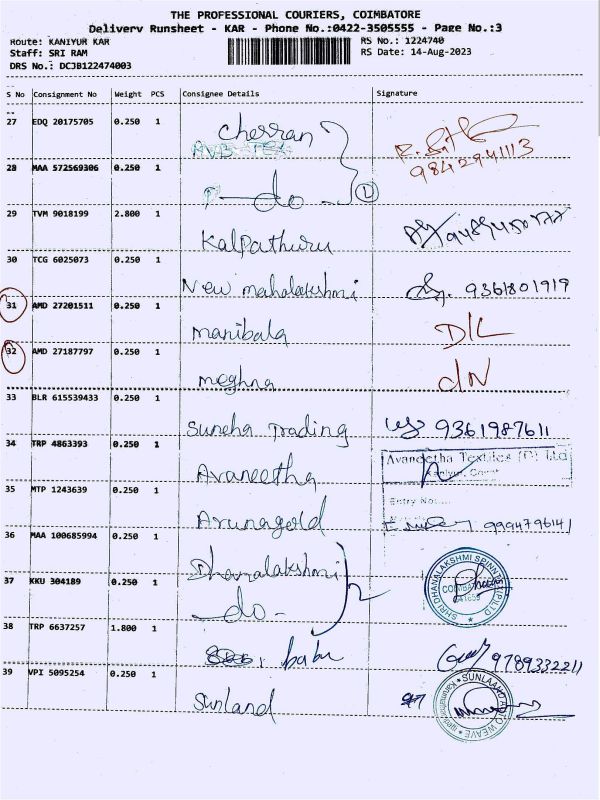 THE PROFESSIONAL COURIERS, COIMBATORE
Delivery Runsheet - KAR - Phone No.:0422-3505555 - Page No.:3
Route: KANIYUR KAR
RS No.: 1224740
Staff: SRI RAM
RS Date: 14-Aug-2023
DRS No.: DCJB122474003
S No Consignment No Weight PCS Consignee Details Signature
27 EDQ 20175705 0.250 1 Cherran
9842941113
28 MAA 572569306 0.250 1 do 2
29 TVM 9018199 2.800 1 Kalpathuru
30 TCG 6025073 0.250 1 New mahalakshmi 9361801919
31 AMD 27201511 0.250 1 manibala D/L
32 AMD 27187797 0.250 1 meghna
33 BLR 615539433 0.250 1 Suneha Trading 9361987611
34 TRP 4863393 0.250 1 Avaneetha Avaneetha Textiles (P) Ltd
Kaniyur, Coimb
35 MTP 1243639 0.250 1 Arunagold Entry No
9994796141
36 MAA 100685994 0.250 1 Dhanalakshmi SHRI DHANALAKSHMI SPINNTEX (P) LTD
37 KKU 304189 0.250 1 do 2
38 TRP 6637257 1.800 1 babu 9789332211
39 VPI 5095254 0.250 1 Sunland